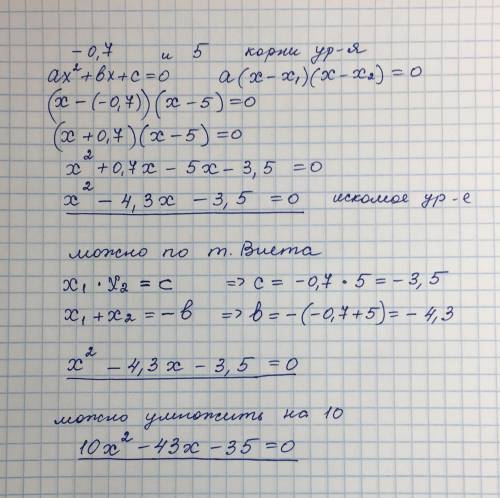 -0,7 и 5 корни ур-я
ax² + bx + c = 0 a(x - x₁)(x - x₂) = 0
(x - (-0,7))(x - 5) = 0
(x + 0,7)(x - 5) = 0
x² + 0,7x - 5x - 3,5 = 0
x² - 4,3x - 3,5 = 0 искомое ур-е
можно по т. Виета
x₁ · x₂ = c => c = -0,7 · 5 = -3,5
x₁ + x₂ = -b => b = -(-0,7+5) = -4,3
x² - 4,3x - 3,5 = 0
можно умножить на 10
10x² - 43x - 35 = 0